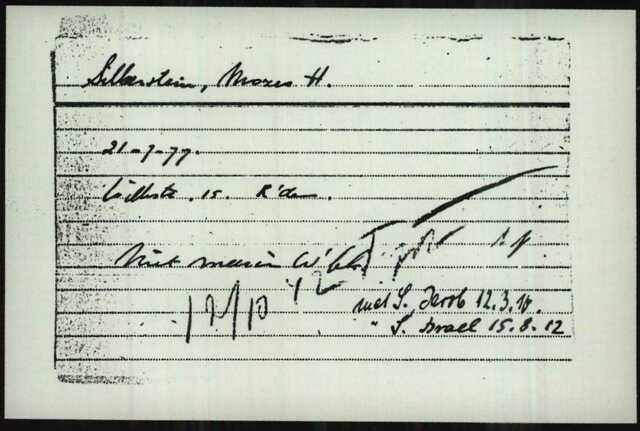 Silberstein, Mozes H.
21-7-77.
15. R'dam.
Niet meer in W'bork
12/10 42
met S. Jacob 12.3.10.
" S. Israel 15.8.12